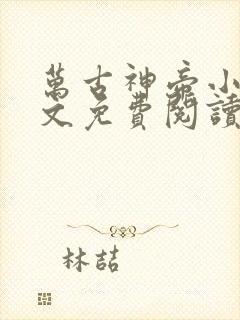 萬古神帝小
文免費閱讀
林喆